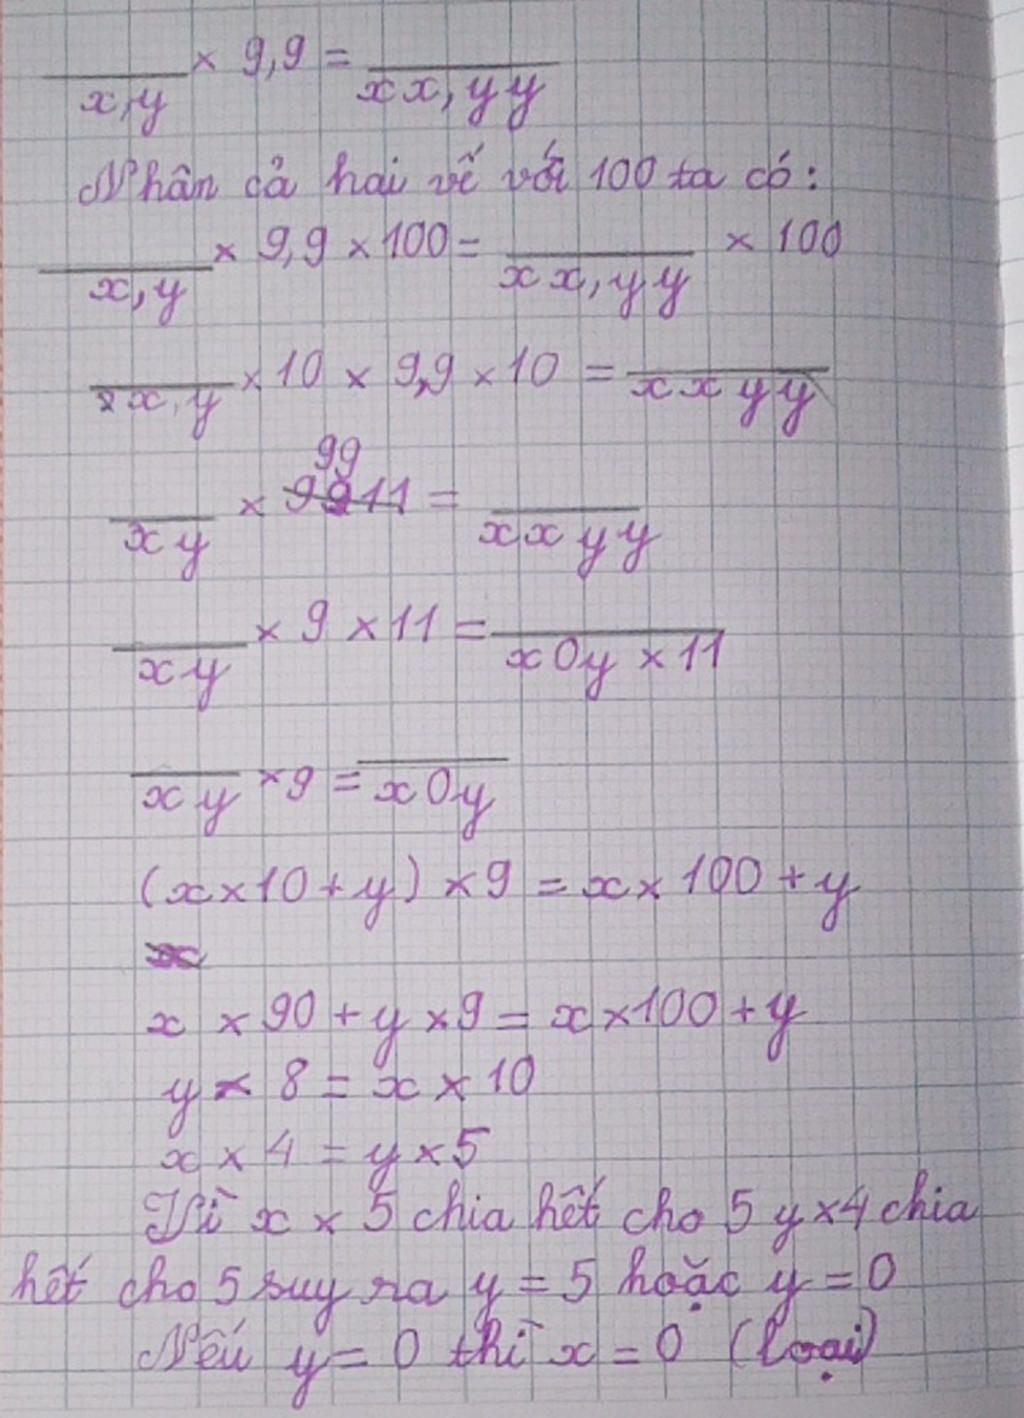 x,y × 9,9 = xx,yy
Nhân cả hai vế với 100 ta có:
x,y × 9,9 × 100 = xx,yy × 100
x,y × 10 × 9,9 × 10 = xxyy
99
xy × 9911 = xxyy
xy × 9 × 11 = x0y × 11
xy × 9 = x0y
(x×10+y) × 9 = x × 100 + y
x
x × 90 + y × 9 = x × 100 + y
y × 8 = x × 10
x × 4 = y × 5
Vì x × 5 chia hết cho 5 y×4 chia
hết cho 5 suy ra y = 5 hoặc y = 0
Nếu y = 0 thì x = 0 (loại)